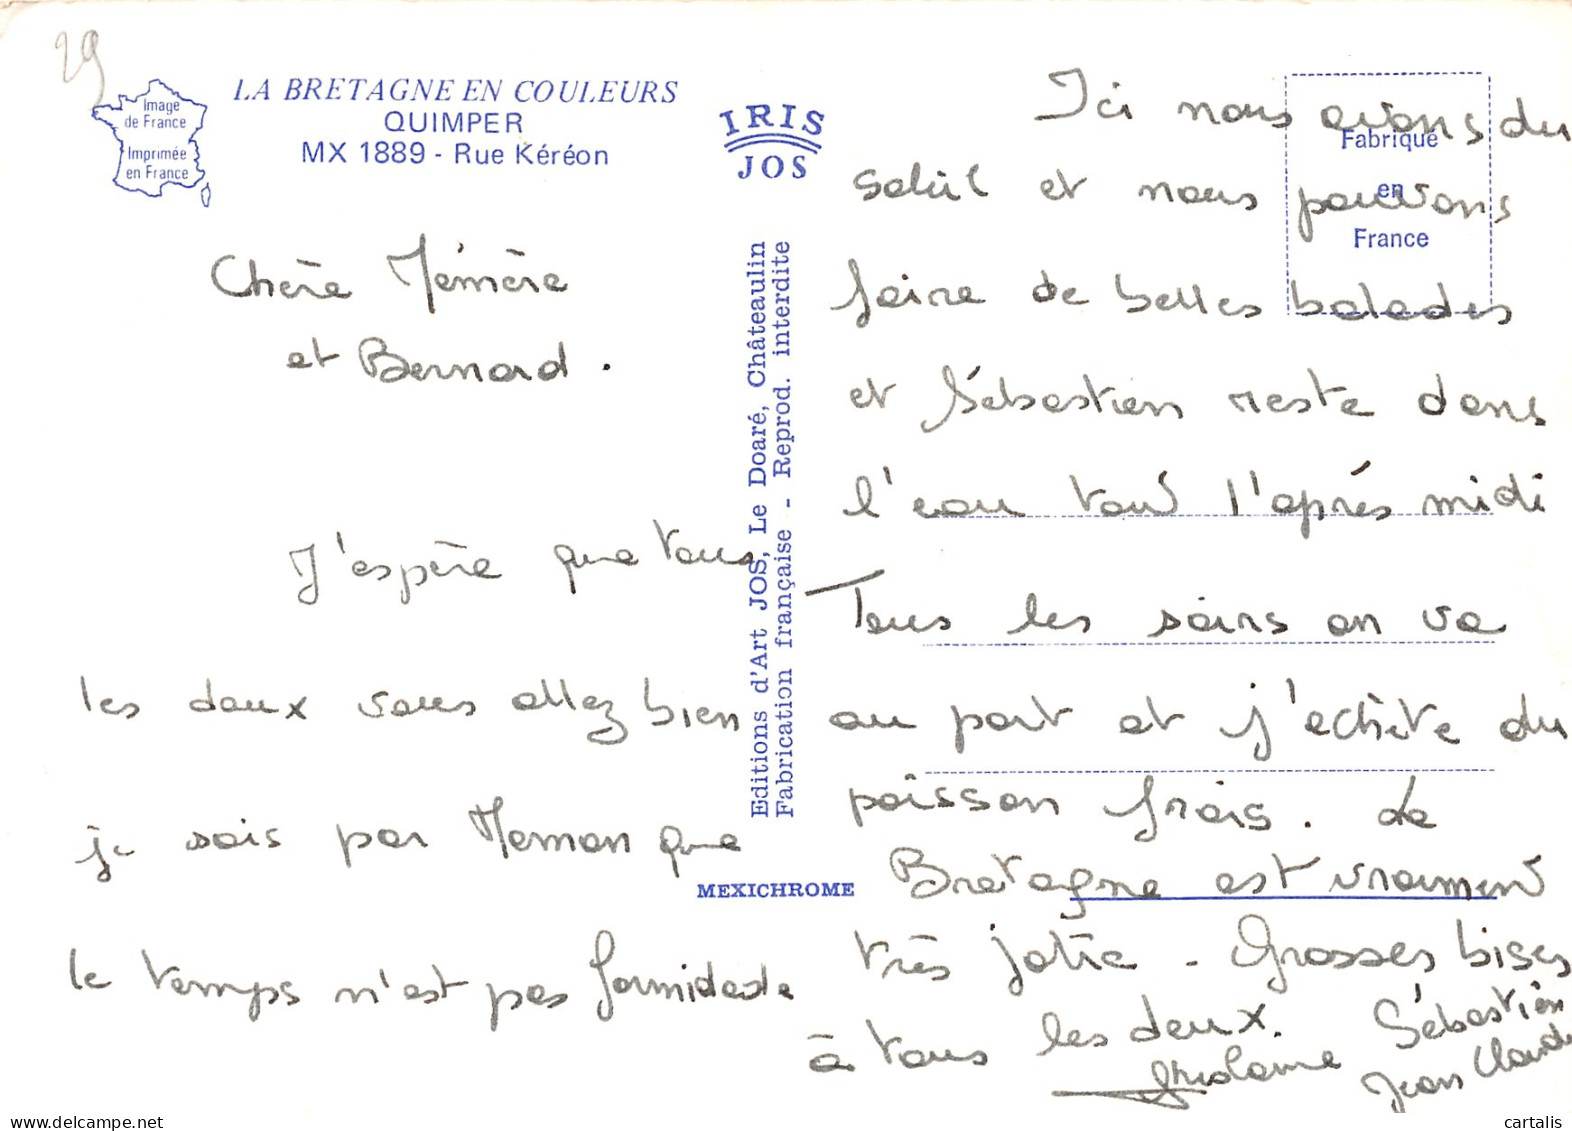 29
Image
de France
Imprimée
en France
LA BRETAGNE EN COULEURS
QUIMPER
MX 1889 - Rue Kéréon
IRIS
JOS
Fabriqué
en
France
Editions d'Art JOS, Le Doaré, Châteaulin
Fabrication française - Reprod. interdite
MEXICHROME
Chère Mémère
et Bernard.
J'espère que tous
les deux vous allez bien
je sais par Maman que
le temps n'est pas formidable
Ici nous avons du
soleil et nous pouvons
faire de belles balades
et Sébastien reste dans
l'eau tout l'après midi
Tous les soirs on va
au port et j'achète du
poisson frais. La
Bretagne est vraiment
très jolie - Grosses bises
à tous les deux.
Ghislaine Sébastien
Jean Claude
cartalis
www.delcampe.net